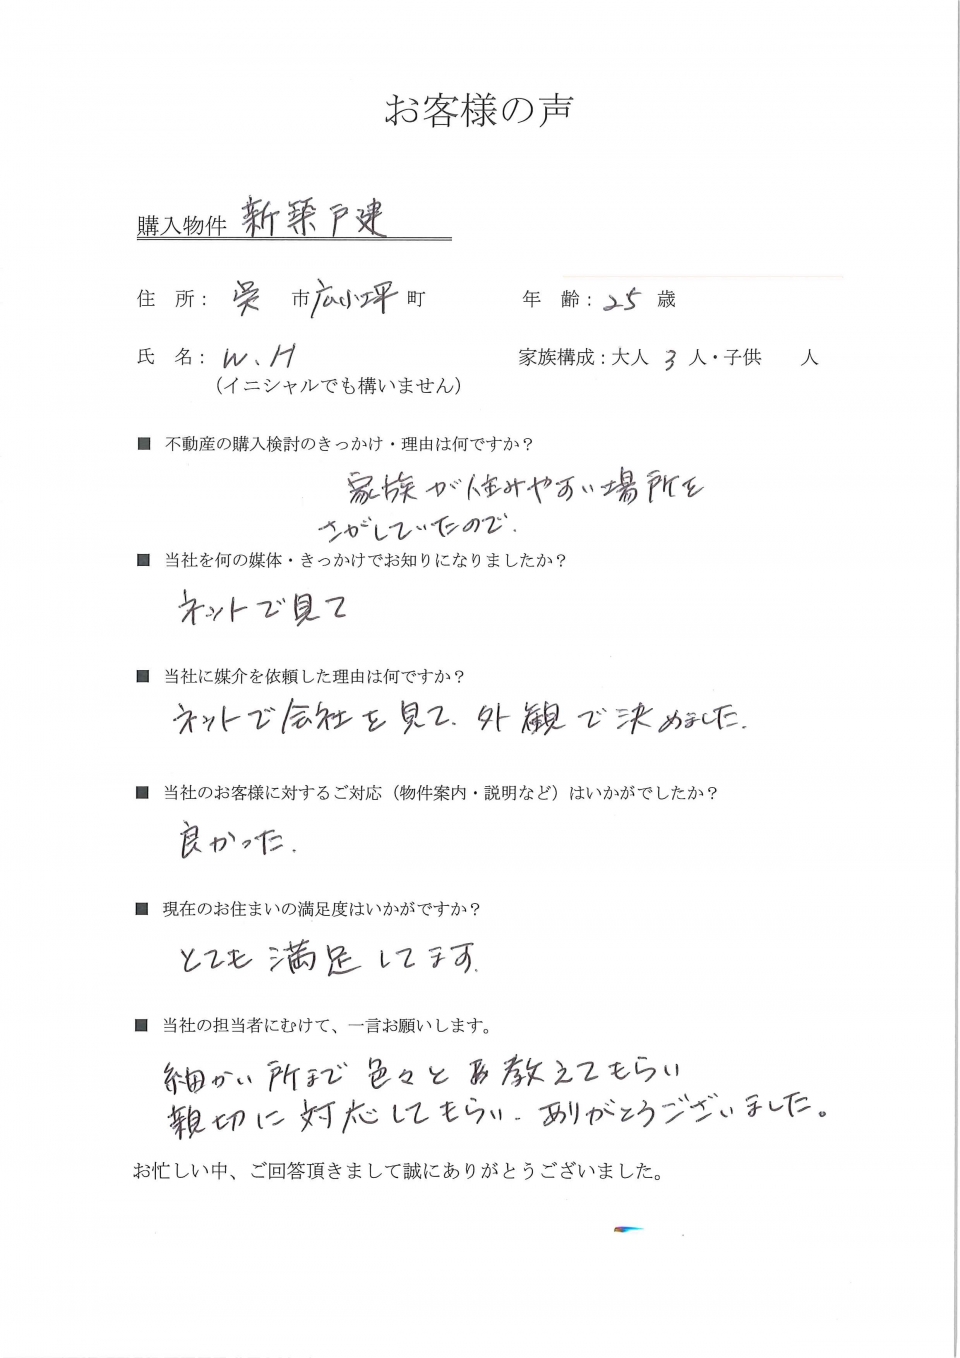 お客様の声
購入物件 新築戸建
住 所： 呉 市 広小坪 町 年 齢：25 歳
氏 名： W.H 家族構成：大人 3 人・子供 人
（イニシャルでも構いません）
■ 不動産の購入検討のきっかけ・理由は何ですか？
家族が住みやすい場所を
さがしていたので.
■ 当社を何の媒体・きっかけでお知りになりましたか？
ネットで見て
■ 当社に媒介を依頼した理由は何ですか？
ネットで会社を見て. 外観で決めました.
■ 当社のお客様に対するご対応（物件案内・説明など）はいかがでしたか？
良かった.
■ 現在のお住まいの満足度はいかがですか？
とても満足してます.
■ 当社の担当者にむけて、一言お願いします。
細かい所まで色々と教えてもらい
親切に対応してもらい. ありがとうございました。
お忙しい中、ご回答頂きまして誠にありがとうございました。